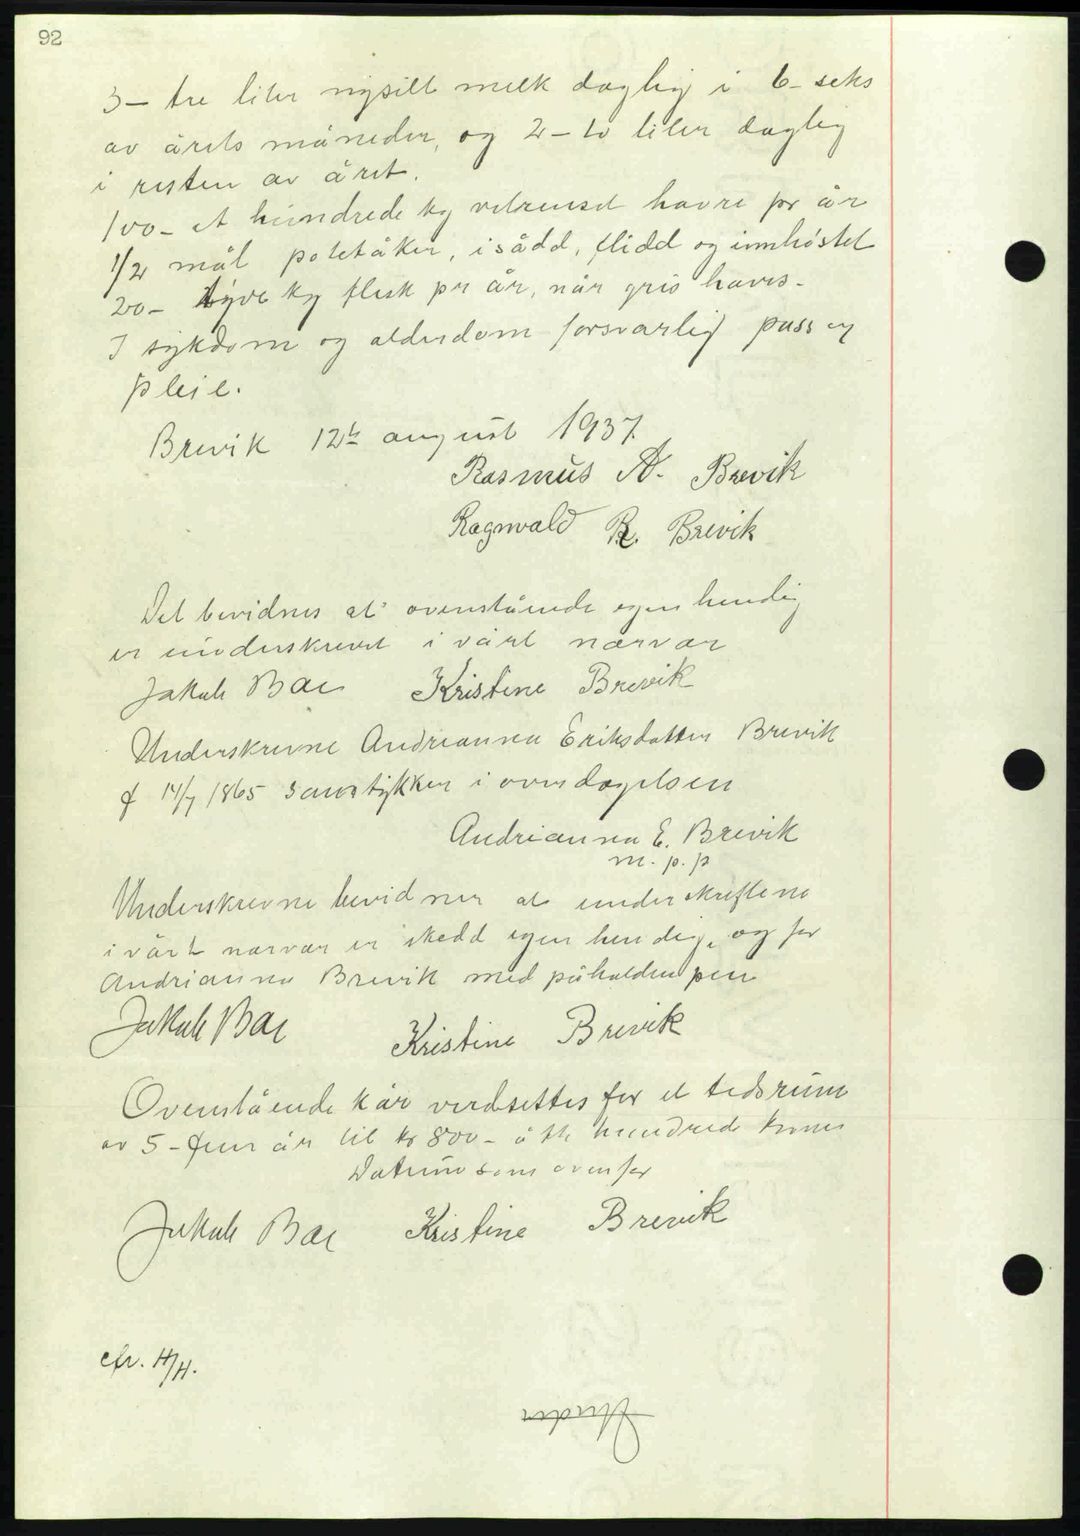 92
3 – tre liter nysilt melk daglig i 6 – seks
av årets måneder, og 2 – to liter daglig
i resten av året.
100 – et hundrede kg velrenset havre pr år
1/2 mål potetåker, isådd, flidd og innhøstet
20 – tyve kg flesk pr år, når gris haves.
I sykdom og alderdom forsvarlig pass og
pleie.
Brevik 12te august 1937.
Rasmus A. Brevik
Ragnvald R. Brevik
Det bevidnes at ovenstående egenhendig
er underskrevet i vårt nærvær
Jakob Bae Kristine Brevik
Underskrevne Andrianna Eriksdatter Brevik
f 14/7 1865 samtykker i overdragelsen
Andrianna E. Brevik
m. p. p
Underskrevne bevidner at underskriftene
i vårt nærvær er skedd egenhendig, og for
Andrianna Brevik med påholden pen
Jakob Bae Kristine Brevik
Ovenstående kår verdsettes for et tidsrum
av 5 – fem år til kr 800 – åtte hundrede kroner
Datum som ovenfor
Jakob Bae Kristine Brevik
cfr. H/H.